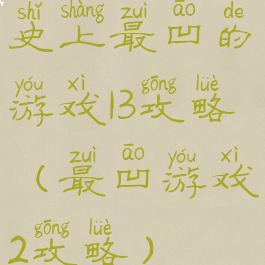 shǐ shàng zuì āo de
史上最凹的
yóu xì gōng lüè
游戏13攻略
zuì āo yóu xì
（最凹游戏
gōng lüè
2攻略）